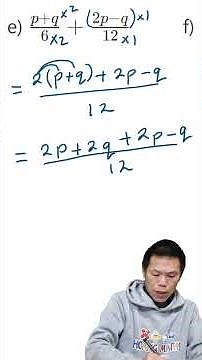 e) p+q/6 ×2 ×2 + (2p−q)/12 ×1 ×1 f)
= 2(p+q) + 2p−q / 12
= 2p+2q+2p−q / 12